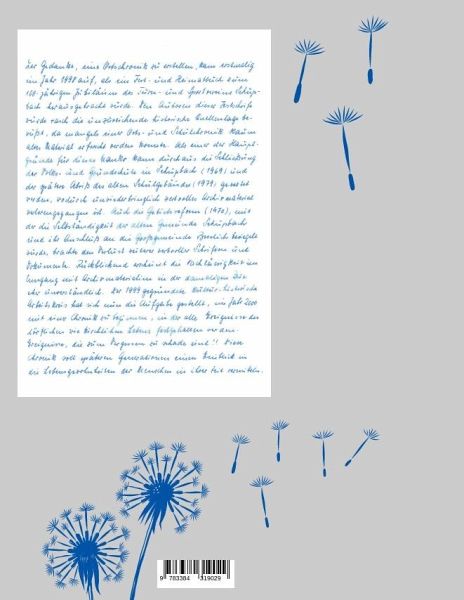 Der Gedanke, eine Ortschronik zu erstellen, kam erstmalig
im Jahr 1998 auf, als ein Fest- und Heimatbuch zum
100-jährigen Jubiläum des Turn- und Sportvereins Schup-
bach herausgebracht wurde. Den Autoren dieser Festschrift
wurde rasch die unzureichende historische Quellenlage be-
wußt, da mangels einer Orts- und Schulchronik kaum
altes Material erforscht werden konnte. Als einer der Haupt-
gründe für dieses Manko kann durchaus die Schließung
der Volks- und Grundschule in Schupbach (1969) und
der spätere Abriß des alten Schulgebäudes (1979) gesehen
werden, wodurch unwiederbringlich wertvolles Archivmaterial
verlorengegangen ist. Auch die Gebietsreform (1970), mit
der die Selbständigkeit der alten Gemeinde Schupbach
und ihr Anschluß an die Großgemeinde Beselich besiegelt
wurde, brachte den Verlust weiterer wertvoller Schriften und
Dokumente. Rückblickend erscheint die Nachlässigkeit im
Umgang mit Archivmaterialien in der damaligen Zeit
eher unverständlich. Der 1999 gegründete Kultur-historische
Arbeitskreis hat sich nun die Aufgabe gestellt, im Jahr 2000
mit einer Chronik zu beginnen, in der alle Ereignisse des
dörflichen wie kirchlichen Lebens festgehalten werden.
Ereignisse, die zum Vergessen zu schade sind!! Diese
Chronik soll späteren Generationen einen Einblick in
die Lebensgewohnheiten der Menschen in ihrer Zeit vermitteln.
9 783384 319029